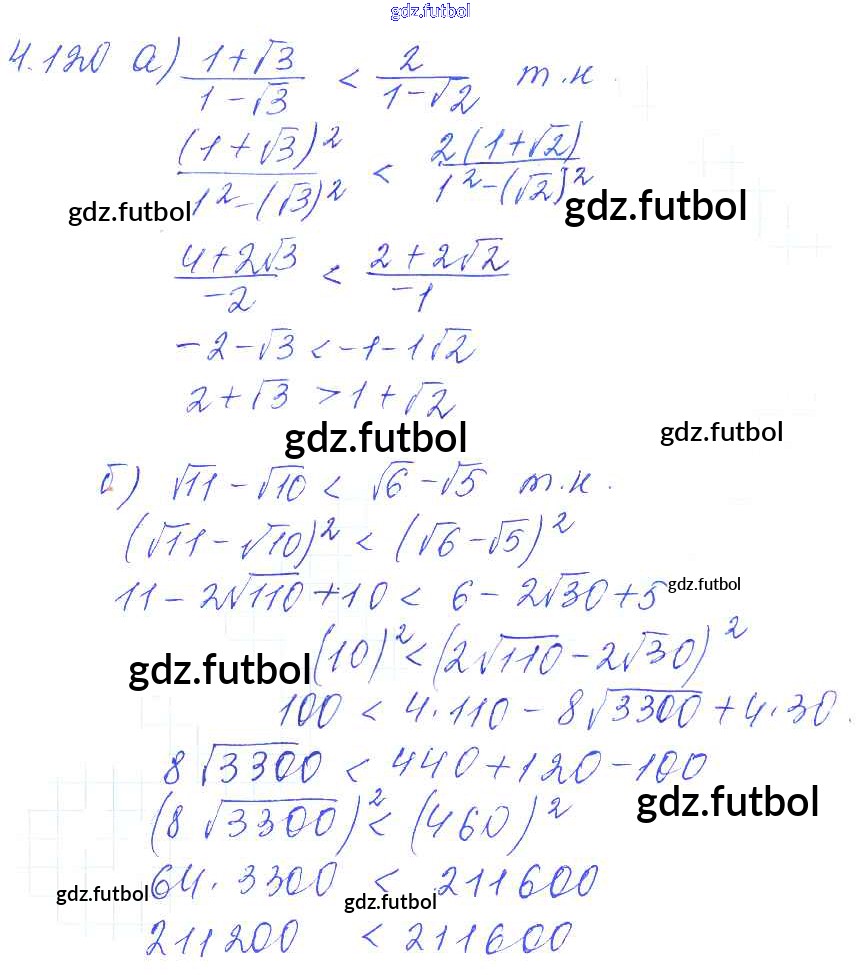 gdz.futbol
4.120 а) (1+√3)/(1-√3) < 2/(1-√2) т.к.
(1+√3)²/(1²-(√3)²) < 2(1+√2)/(1²-(√2)²)
gdz.futbol gdz.futbol
(4+2√3)/(-2) < (2+2√2)/(-1)
-2-√3 < -1-1√2
2+√3 > 1+√2
gdz.futbol gdz.futbol
б) √11-√10 < √6-√5 т.к.
(√11-√10)² < (√6-√5)²
11-2√110+10 < 6-2√30+5
gdz.futbol
gdz.futbol (10)² < (2√110-2√30)²
100 < 4·110-8√3300+4·30.
8√3300 < 440+120-100
(8√3300)² < (460)²
gdz.futbol
64·3300 < 211600
gdz.futbol gdz.futbol
211200 < 211600